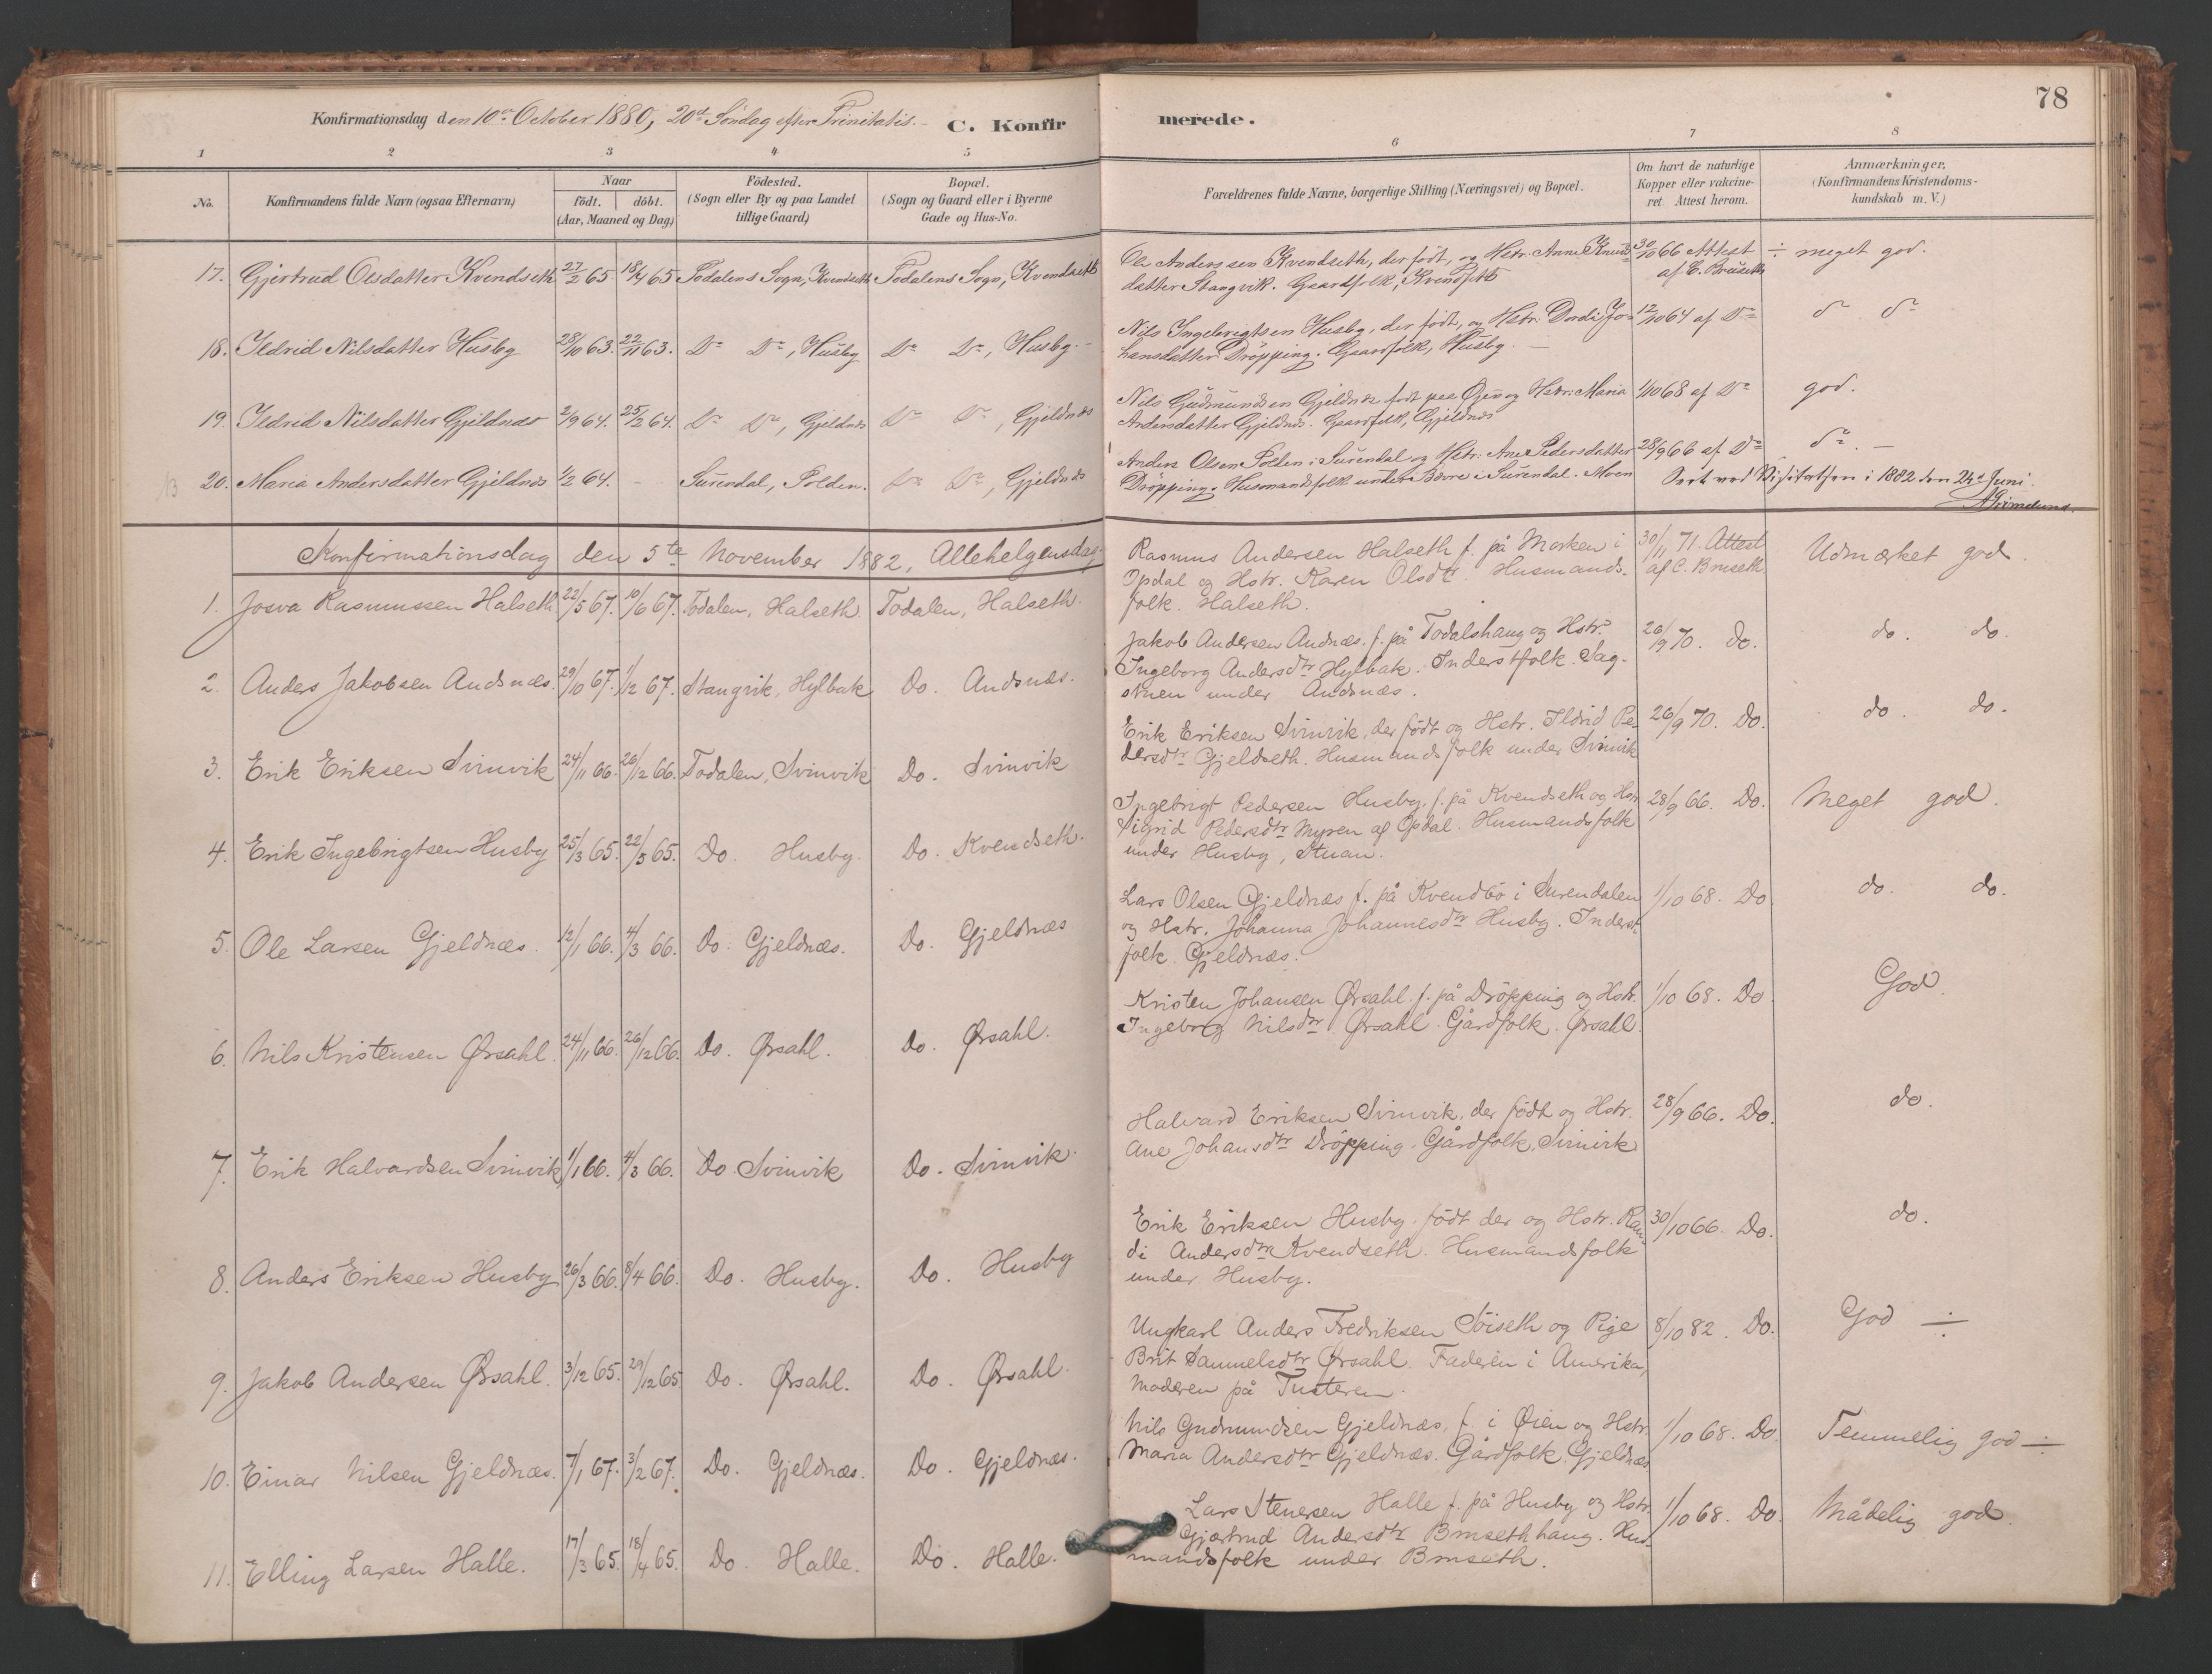 78
Konfirmationsdag den 10de October 1880, 20de Søndag efter Trinitatis. C. Konfirmerede.
1 2 3 4 5 6 7 8
No. Konfirmandens fulde Navn (ogsaa Efternavn) Naar født. døbt. (Aar, Maaned og Dag) Födested. (Sogn eller By og paa Landet tillige Gaard) Bopæl. (Sogn og Gaard eller i Byerne Gade og Hus-No. Forældrenes fulde Navne, borgerlige Stilling (Næringsvei) og Bopæl. Om havt de naturlige Kopper eller vakcineret. Attest herom. Anmærkninger. (Konfirmandens Kristendomskundskab m. V.)
17. Gjertrud Olsdatter Kvendseth 27/2 65 18/4 65 Todalens Sogn, Kvendseth Todalens Sogn, Kvendseth
Ole Anderssen Kvendseth, der født, og Hstr. Anne Knuds- 30/10 66 Attest ÷ meget god.
datter Stangvik. Gaardfolk, Kvendseth af C. Bruseth
18. Ildrid Nilsdatter Husby 28/10 63. 22/11 63. Do Do, Husby Do Do, Husby.
Nils Ingebrigtsen Husby, der født, og Hstr. Dordi Jo- 12/10 64 af Do do do
hansdatter Dröpping. Gaardfolk, Husby.
19. Ildrid Nilsdatter Gjeldnæs 2/9 64. 25/2 64. Do Do, Gjeldnæs Do Do, Gjeldnæs
Nils Gudmundsen Gjeldnæs født paa Øien og Hstr: Maria 1/10 68 af Do god.
Andersdatter Gjeldnæs. Gaardfolk, Gjeldnæs
20. Maria Andersdatter Gjeldnæs 1/2 64. - Surendal, Polden. Do Do, Gjeldnæs
Anders Olsen Polden i Surendal og Hstr: Ane Pedersdatter 28/9 66 af Do do
Dröpping. Husmandsfolk under Bævre i Surendal. Moen
1882 den 24de Juni.
Konfirmationsdag den 5te November 1882, Allehelgensdag.
1. Josva Rasmussen Halseth 22/5 67. 10/6 67. Todalen, Halseth. Todalen, Halseth.
Rasmus Andersen Halseth f. på Morken i 30/11 71. Attest Udmærket god.
Opdal og Hstr. Karen Olsdtr. Husmands- af C. Bruseth
folk. Halseth.
2. Anders Jakobsen Andsnæs. 29/10 67. 1/12 67. Stangvik, Hylbak Do. Andsnæs.
Jakob Andersen Andnæs. f. på Todalshaug og Hstr. 26/9 70. Do. do. do.
Ingeborg Andersdtr Hylbak. Inderstfolk. Sag-
stuen under Andsnæs.
3. Erik Eriksen Svinvik 24/11 66. 26/12 66. Todalen, Svinvik Do. Svinvik
Erik Eriksen Svinvik, der født og Hstr. Ildrid Pe- 26/9 70. Do. do. do.
dersdtr Gjeldseth. Husmandsfolk under Svinvik
4. Erik Ingebrigtsen Husby 25/3 65. 22/5 65. Do. Husby. Do. Kvendseth.
Ingebrigt Pedersen Husby. f. på Kvendseth og Hstr. 28/9 66. Do. Meget god.
Sigrid Pedersdtr Myren af Opdal. Husmandsfolk
under Husby, Stuan.
5. Ole Larsen Gjeldnæs. 12/1 66. 4/3 66. Do. Gjeldnæs. Do. Gjeldnæs
Lars Olsen Gjeldnæs f. på Kvendbø i Surendalen 1/10 68. Do do. do.
og Hstr. Johanna Johannesdtr Husby. Inderst-
folk. Gjeldnæs.
6. Nils Kristensen Ørsahl. 24/11 66. 26/12 66. Do. Ørsahl. Do. Ørsahl.
Kristen Johansen Ørsahl. f. på Dröpping og Hstr. 1/10 68. Do God.
Ingeborg Nilsdtr Ørsahl. Gårdfolk. Ørsahl.
7. Erik Halvardsen Svinvik 1/1 66. 4/3 66. Do Svinvik Do. Svinvik.
Halvard Eriksen Svinvik, der født og Hstr. 28/9 66. Do. do.
Ane Johansdtr Dröpping. Gårdfolk, Svinvik
8. Anders Eriksen Husby 26/3 66. 8/4 66. Do. Husby. Do. Husby
Erik Eriksen Husby. født der og Hstr. Ran- 30/10 66. Do. do.
di Andersdtr Kvendseth. Husmandsfolk
under Husby.
9. Jakob Andersen Ørsahl. 3/12 65. 29/12 65. Do. Ørsahl. Do. Ørsahl.
Ungkarl Anders Fredriksen Söiseth og Pige 8/10 82. Do. God ÷
Brit Samuelsdtr Ørsahl. Faderen i Amerika,
Moderen på Tusteren.
10. Einar Nilsen Gjeldnæs. 7/1 67. 3/2 67. Do. Gjeldnæs. Do. Gjeldnæs.
Nils Gudmundsen Gjeldnæs, f. i Øien og Hstr. 1/10 68. Do. Temmelig god ÷
Maria Andersdtr Gjeldnæs. Gårdfolk. Gjeldnæs
11. Elling Larsen Halle. 17/3 65. 18/4 65. Do Halle. Do. Halle.
Lars Stenersen Halle f. på Husby og Hstr. 1/10 68. Do. Mådelig god.
Gjærtrud Andersdtr Brusethhaug. Hus-
mandsfolk under Bruseth.